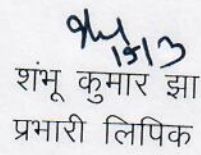 15/3
शंभू कुमार झा
प्रभारी लिपिक